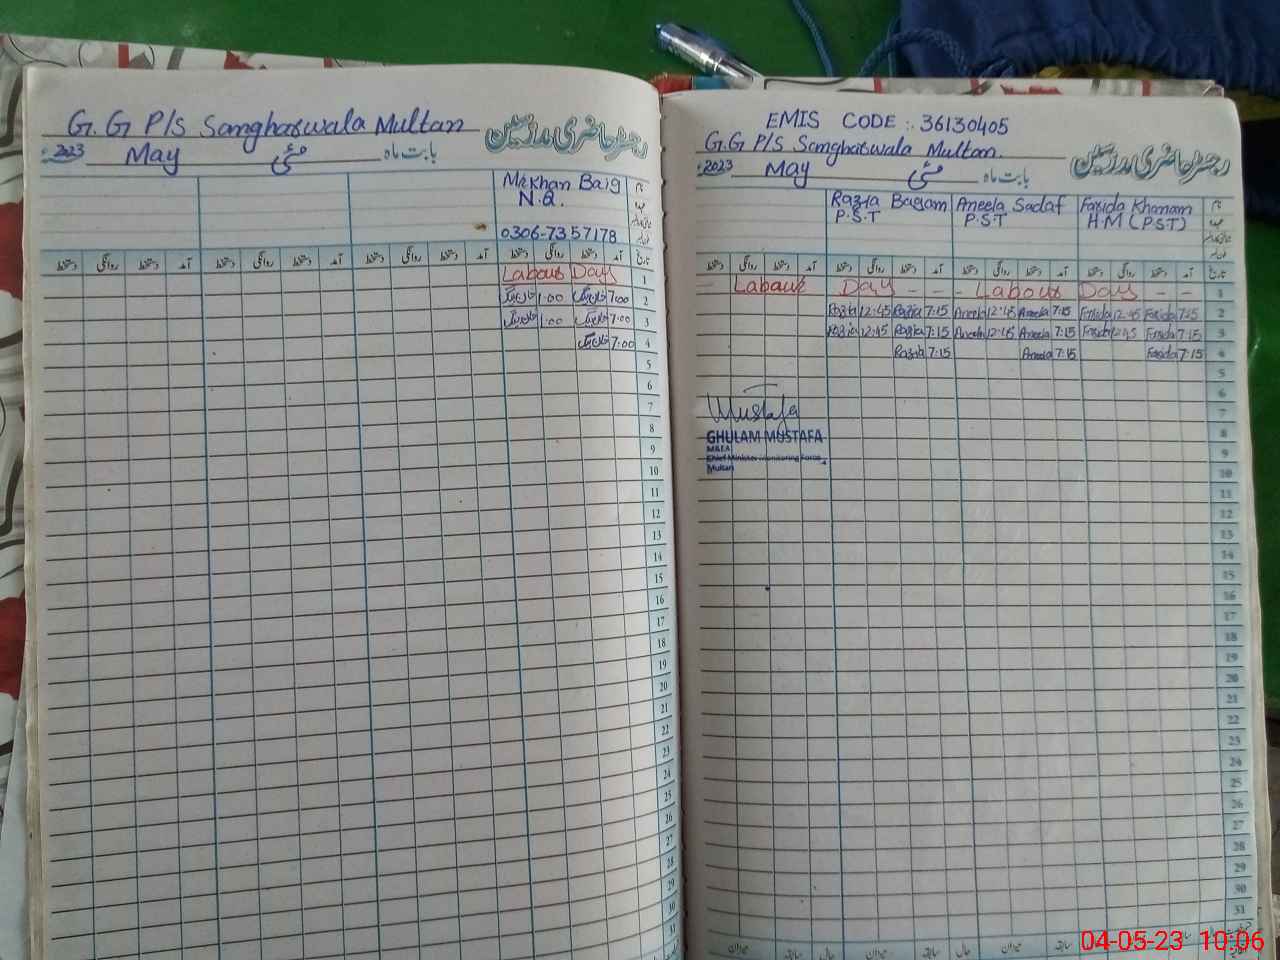 G.G P/S Samghatwala Multan
رجسٹر حاضری مدرسین
2023 May مئی بابت ماہ
Mr Khan Baig
N.Q.
0306-7357178
نام
تاریخ
دستخط روانگی دستخط آمد دستخط روانگی دستخط آمد دستخط روانگی دستخط آمد دستخط روانگی دستخط آمد
Labour Day 1
1:00 7:00 2
1:00 7:00 3
7:00 4
5
6
7
8
9
10
11
12
13
14
15
16
17
18
19
20
21
22
23
24
25
26
27
28
29
30
31
EMIS CODE :. 36130405
G.G P/S Samghatwala Multan.
رجسٹر حاضری مدرسین
2023 May مئی بابت ماہ
Razia Bagam Aneela Sadaf Farida Khanam نام
P.S.T P.S.T H.M (P.S.T)
دستخط روانگی دستخط آمد دستخط روانگی دستخط آمد دستخط روانگی دستخط آمد دستخط روانگی دستخط آمد تاریخ
Labour Day - - - Labour Day - - 1
Razia 12:45 Razia 7:15 Aneela 12:45 Aneela 7:15 Farida 12:45 Farida 7:15 2
Razia 12:45 Razia 7:15 Aneela 12:45 Aneela 7:15 Farida 12:45 Farida 7:15 3
Razia 7:15 Aneela 7:15 Farida 7:15 4
5
6
7
Mustafa
GHULAM MUSTAFA 8
MAEA 9
Chief Minister Monitoring Force
Multan 10
11
12
13
14
15
16
17
18
19
20
21
22
23
24
25
26
27
28
29
30
31
میزان سابقہ حال میزان سابقہ حال میزان سابقہ
04-05-23 10:06